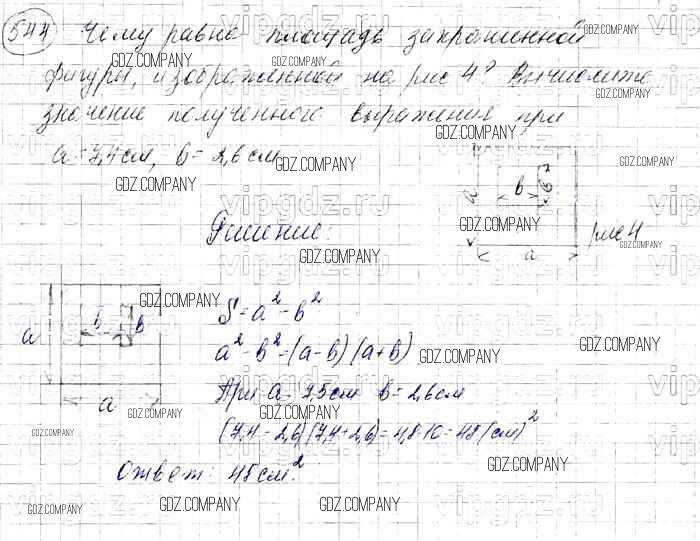 544 Чему равна площадь закрашенной
фигуры, изображенной на рис 4? Вычислите
значение полученного выражения при
a = 7,4 см, b = 2,6 см
a
b
b
a
рис 4
Решение:
a
b
b
a
S = a² - b²
a² - b² = (a - b) (a + b)
При a = 7,5 см b = 2,6 см
(7,4 - 2,6) (7,4 + 2,6) = 4,8 · 10 = 48 (см)²
Ответ: 48 см².
GDZ.COMPANY
vipgdz.ru